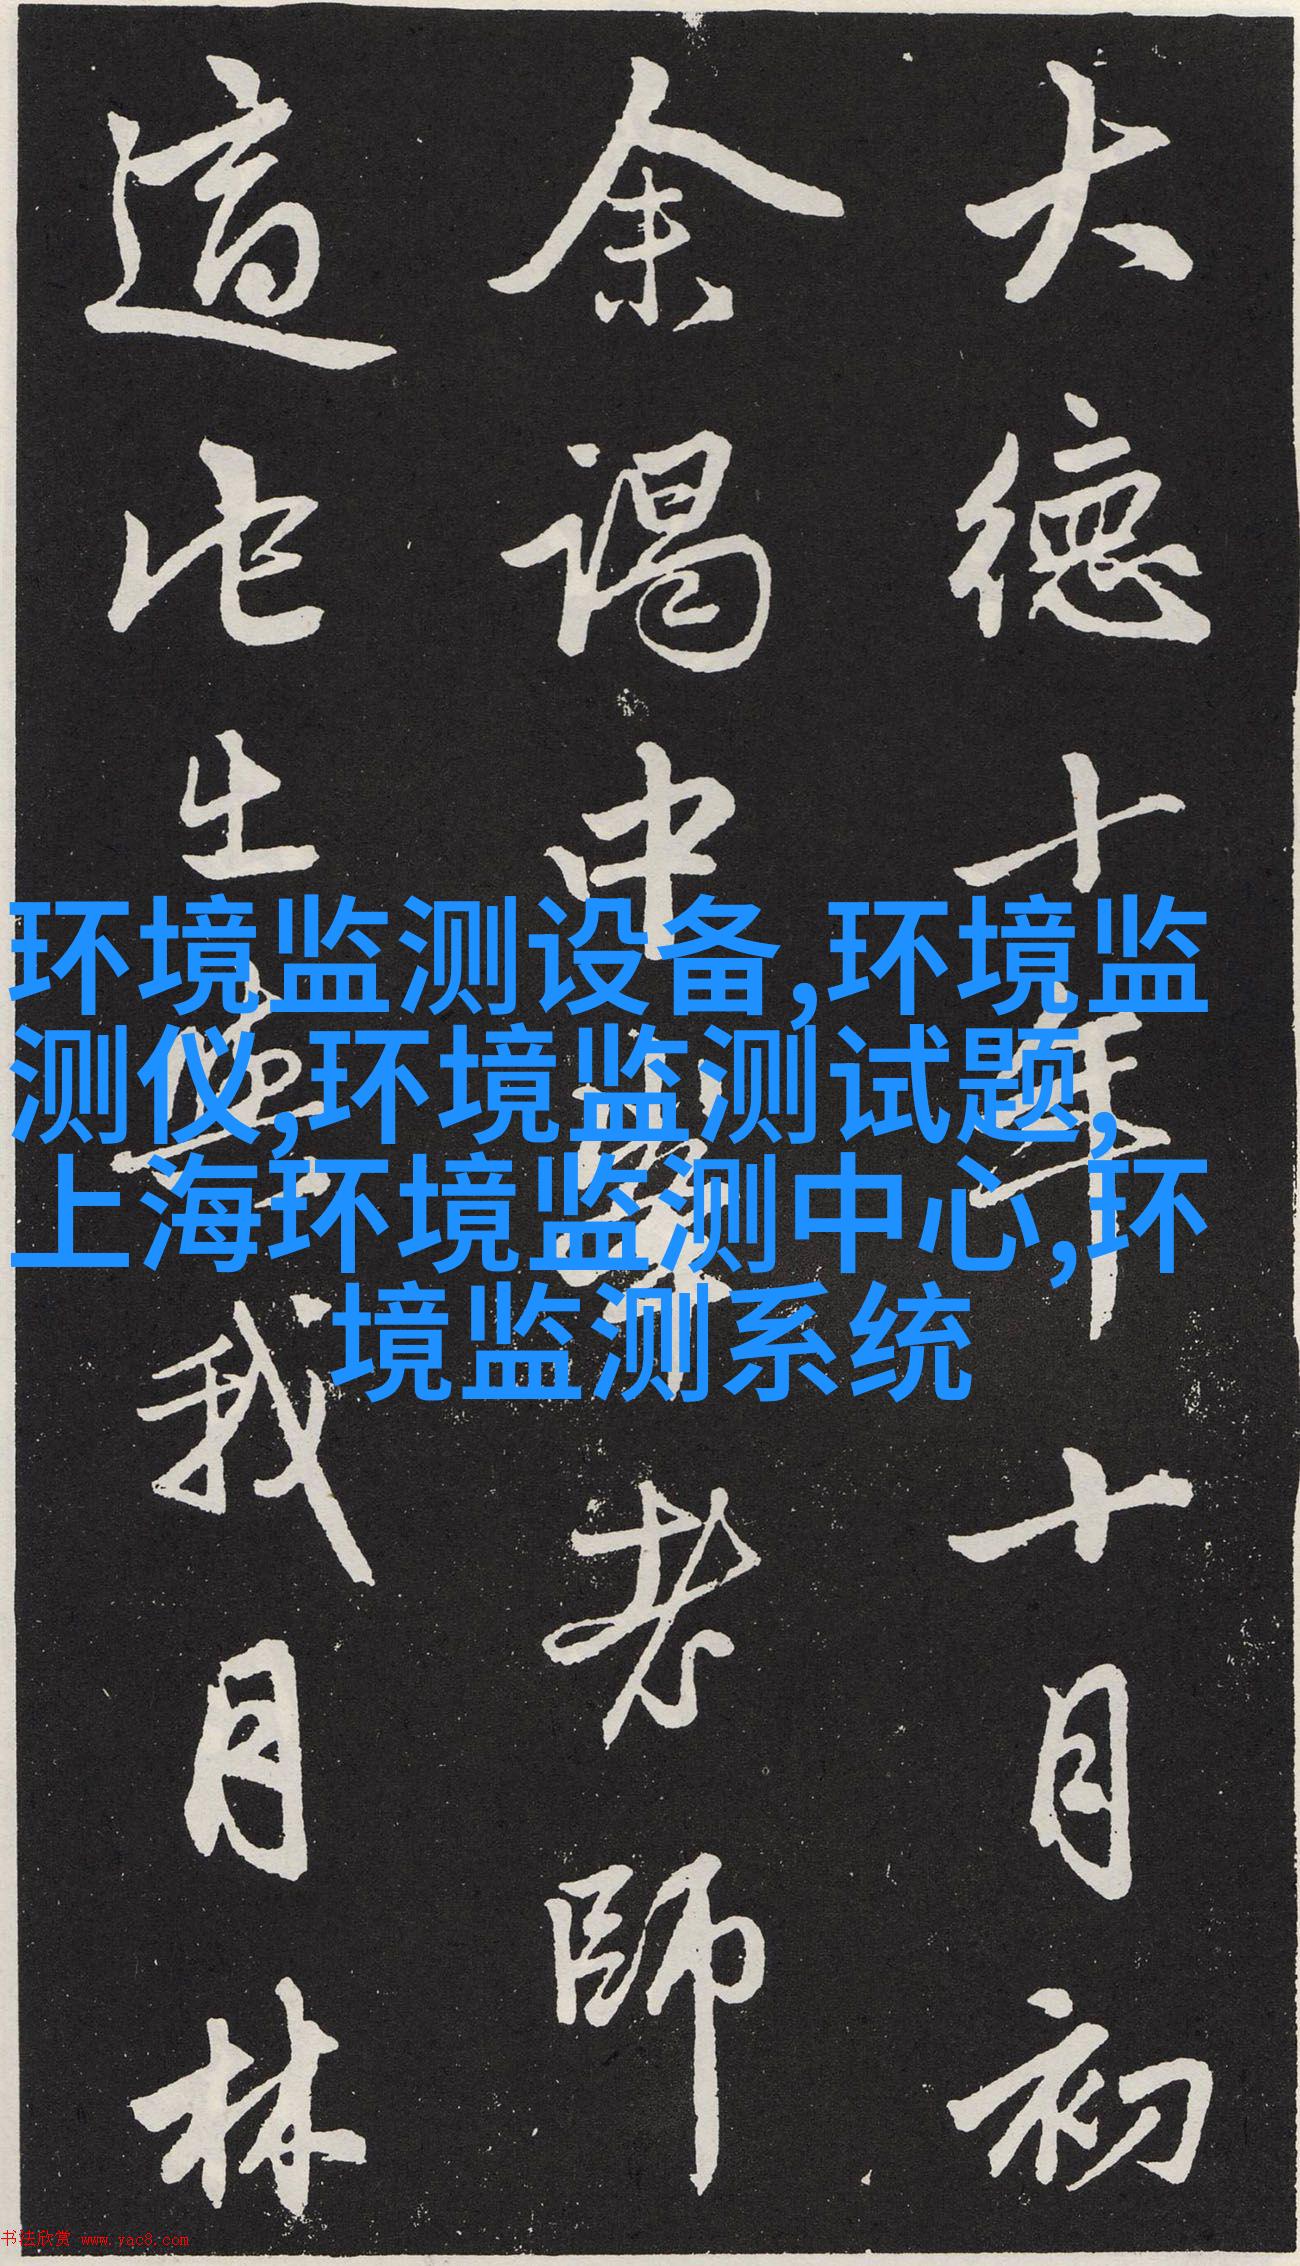 大德十年十月初
余谒中峯老師
適此出画我月林
环境监测设备,环境监
测仪,环境监测试题,
上海环境监测中心,环
境监测系统
书法欣赏 www.yac8.com